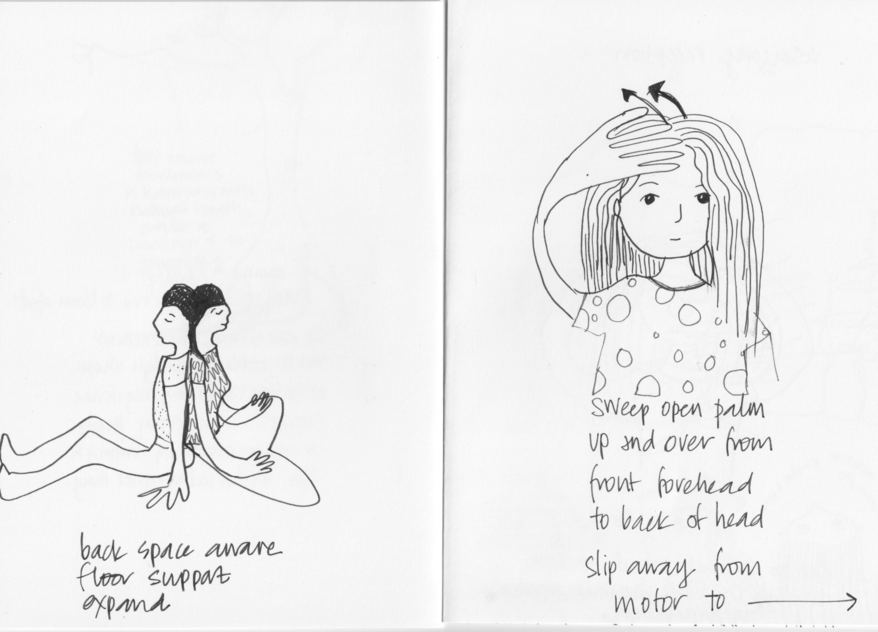 back space aware
floor suppat
expand
sweep open palm
up and over from
front forehead
to back of head
slip away from
motor to →